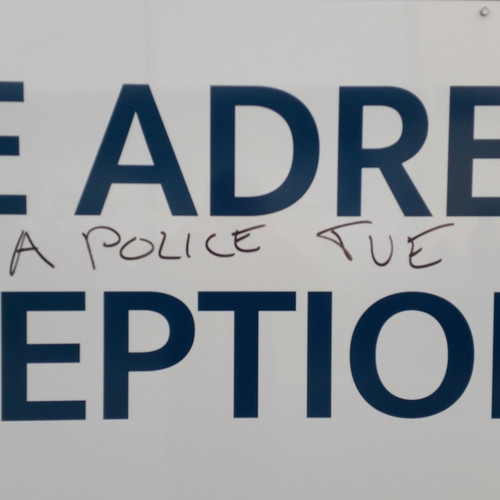 E ADRE
A POLICE TUE
EPTIO